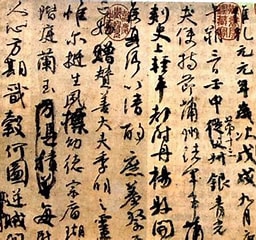 維乾元元年歲次戊戌九月庚
午朔三日壬申第十三從父銀青光
夫使持節蒲州諸軍事蒲
刺史上輕車都尉丹楊縣開
侯真卿以清酌庶羞祭于
亡姪贈贊善大夫季明之靈
惟爾挺生夙標幼德宗廟瑚
階庭蘭玉方憑積善每慰
人心方期戩穀何圖逆賊